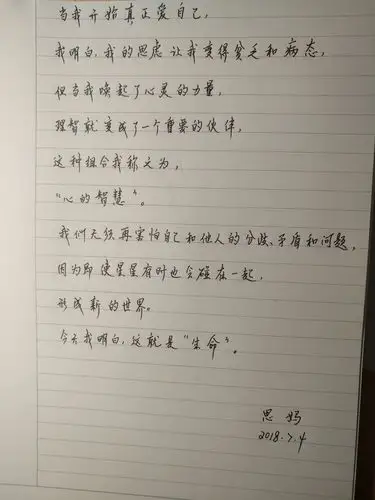 当我开始真正爱自己,
我明白,我的思虑让我变得贫乏和病态,
但当我唤起了心灵的力量,
理智就变成了一个重要的伙伴,
这种组合我称之为,
“心的智慧”。
我们无须再害怕自己和他人的分歧、矛盾和问题,
因为即使星星有时也会碰在一起,
形成新的世界。
今天我明白,这就是“生命”。
思妈
2018.7.4